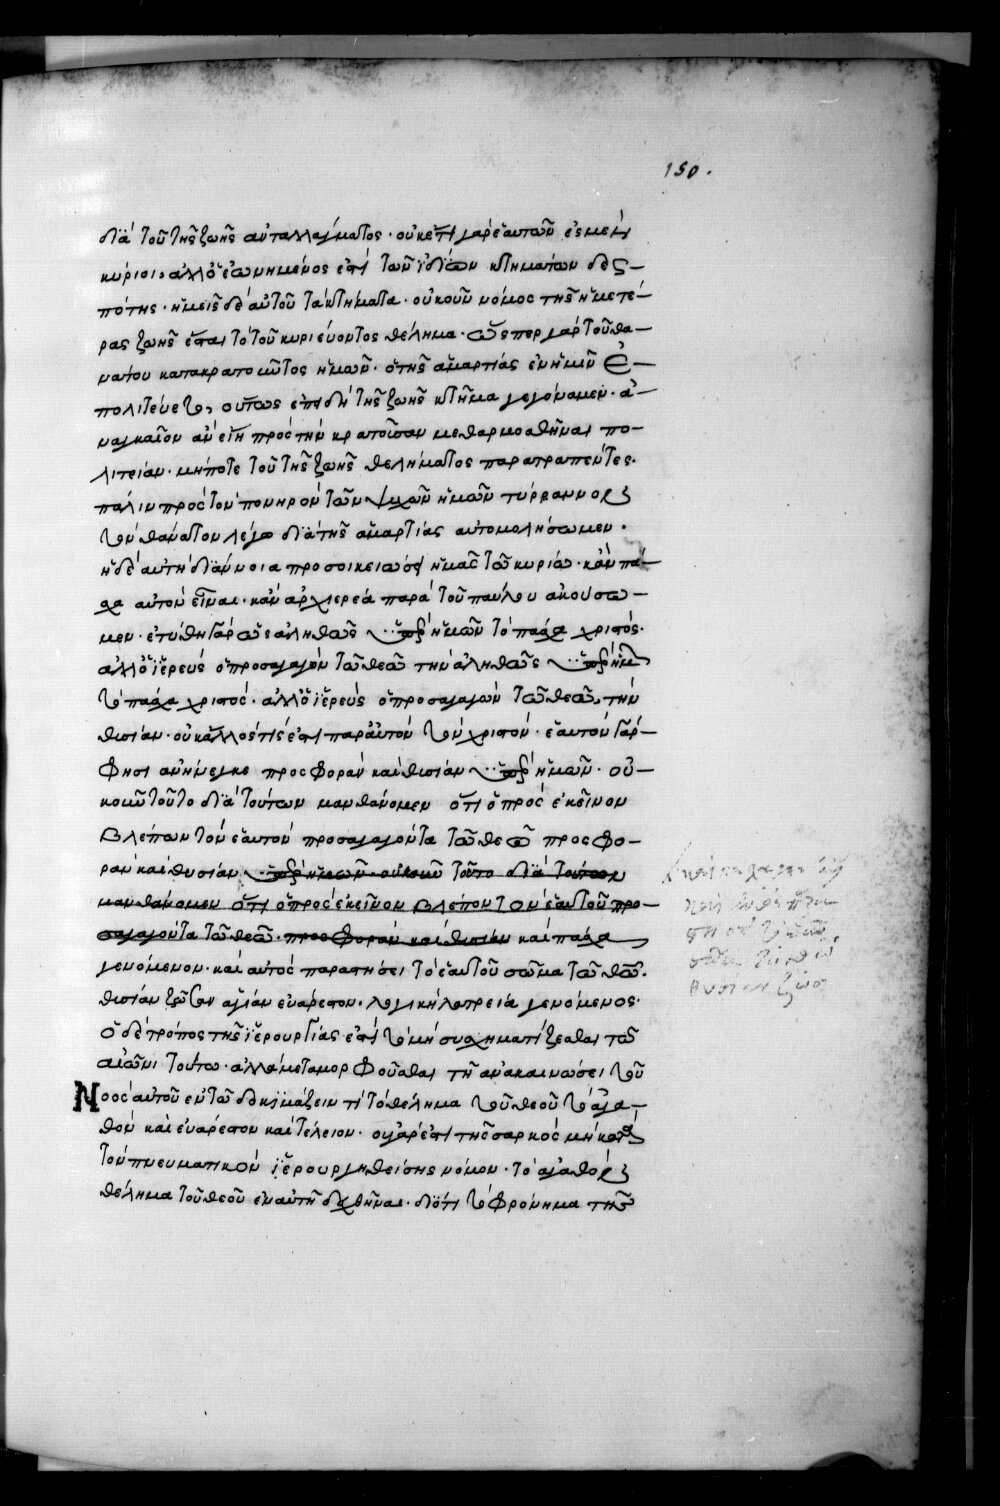 150.
διὰ τοῦ τῆς ζωῆς ἀνταλλάγματος· οὐκέτι γὰρ ἑαυτῶν ἐσμὲν
κύριοι, ἀλλ' ὁ ἐωνημένος ἐστὶ τῶν ἰδίων κτημάτων δεσ-
πότης· ἡμεῖς δὲ αὐτοῦ τὰ κτήματα· οὐκοῦν νόμος τῆς ἡμετέ-
ρας ζωῆς ἔσται τὸ τοῦ κυριεύοντος θέλημα· ὥσπερ γὰρ τοῦ θα-
νάτου κατακρατοῦντος ἡμῶν· ὁ τῆς ἁμαρτίας ἐν ἡμῖν ἐ-
πολιτεύετο, οὕτως ἐπειδὴ τῆς ζωῆς κτῆμα γεγόναμεν· ἀ-
ναγκαῖον ἂν εἴη πρὸς τὴν κρατοῦσαν μεθαρμοσθῆναι πο-
λιτείαν· μήποτε τοῦ τῆς ζωῆς θελήματος παρατραπέντες·
πάλιν πρὸς τὸν πονηρὸν τῶν ψυχῶν ἡμῶν τύραννον
τὸν θάνατον λέγω διὰ τῆς ἁμαρτίας αὐτομολήσωμεν·
ἡ δὲ αὐτὴ διάνοια προσοικειώσει ἡμᾶς τῷ κυρίῳ· κἂν πά-
σχα αὐτὸν εἶναι· κἂν ἀρχιερέα παρὰ τοῦ παύλου ἀκούσω-
μεν· ἐτύθη γὰρ ὡς ἀληθῶς ὑπὲρ ἡμῶν τὸ πάσχα χριστός·
ἀλλ' ὁ ἱερεὺς ὁ προσαγαγὼν τῷ θεῷ τὴν ἀληθῶς ὑπὲρ ἡμῶν
τὸ πάσχα χριστός· ἀλλ' ὁ ἱερεὺς ὁ προσαγαγὼν τῷ θεῷ, τὴν
θυσίαν· οὐκ ἄλλος τίς ἐστι παρ' αὐτὸν τὸν χριστόν· ἑαυτὸν γάρ
φησι ἀνήνεγκε προσφορὰν καὶ θυσίαν ὑπὲρ ἡμῶν· οὐ-
κοῦν τοῦτο διὰ τούτων μανθάνομεν ὅτι ὁ πρὸς ἐκεῖνον
βλέπων τὸν ἑαυτὸν προσαγαγόντα τῷ θεῷ προσφο-
ρὰν καὶ θυσίαν ὑπὲρ ἡμῶν· οὐκοῦν τοῦτο διὰ τούτων
μανθάνομεν ὅτι ὁ πρὸς ἐκεῖνον βλέπον τὸν ἑαυτοῦ προ-
σαγαγόντα τῷ θεῷ· προσφορὰν καὶ θυσίαν καὶ πάσχα
γενόμενον· καὶ αὐτὸς παραστήσει τὸ ἑαυτοῦ σῶμα τῷ θεῷ·
θυσίαν ζῶσαν ἁγίαν εὐάρεστον· λογικὴ λατρεία γενόμενος·
ὁ δὲ τρόπος τῆς ἱερουργίας ἐστὶ τὸ μὴ συσχηματίζεσθαι τῷ
αἰῶνι τούτω· ἀλλὰ μεταμορφοῦσθαι τῇ ἀνακαινώσει τοῦ
Νοὸς αὐτοῦ ἐν τῷ δοκιμάζειν τί τὸ θέλημα τοῦ θεοῦ τὸ ἀγα-
θὸν καὶ εὐάρεστον καὶ τέλειον· οὐ γάρ ἐστι τῆς σαρκὸς μὴ κατὰ
τὸν πνευματικὸν ἱερουργηθείσης νόμον· τὸ ἀγαθὸν
θέλημα τοῦ θεοῦ ἐν αὐτῇ δειχθῆναι· διότι τὸ φρόνημα τῆς